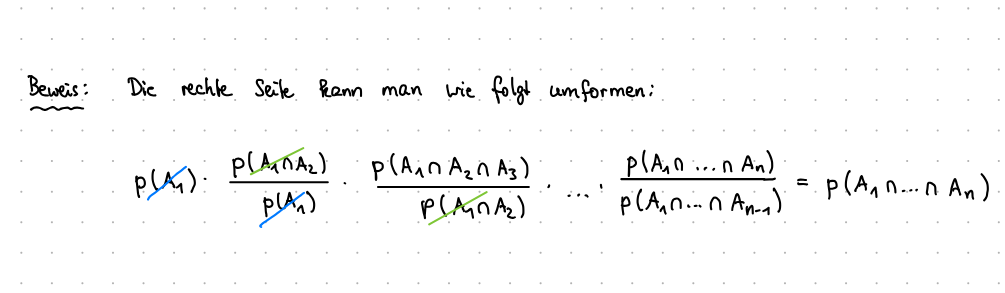 Beweis: Die rechte Seite kann man wie folgt umformen:
p(A₁) · p(A₁∩A₂)/p(A₁) · p(A₁∩A₂∩A₃)/p(A₁∩A₂) · ... · p(A₁∩...∩Aₙ)/p(A₁∩...∩Aₙ₋₁) = p(A₁∩...∩Aₙ)